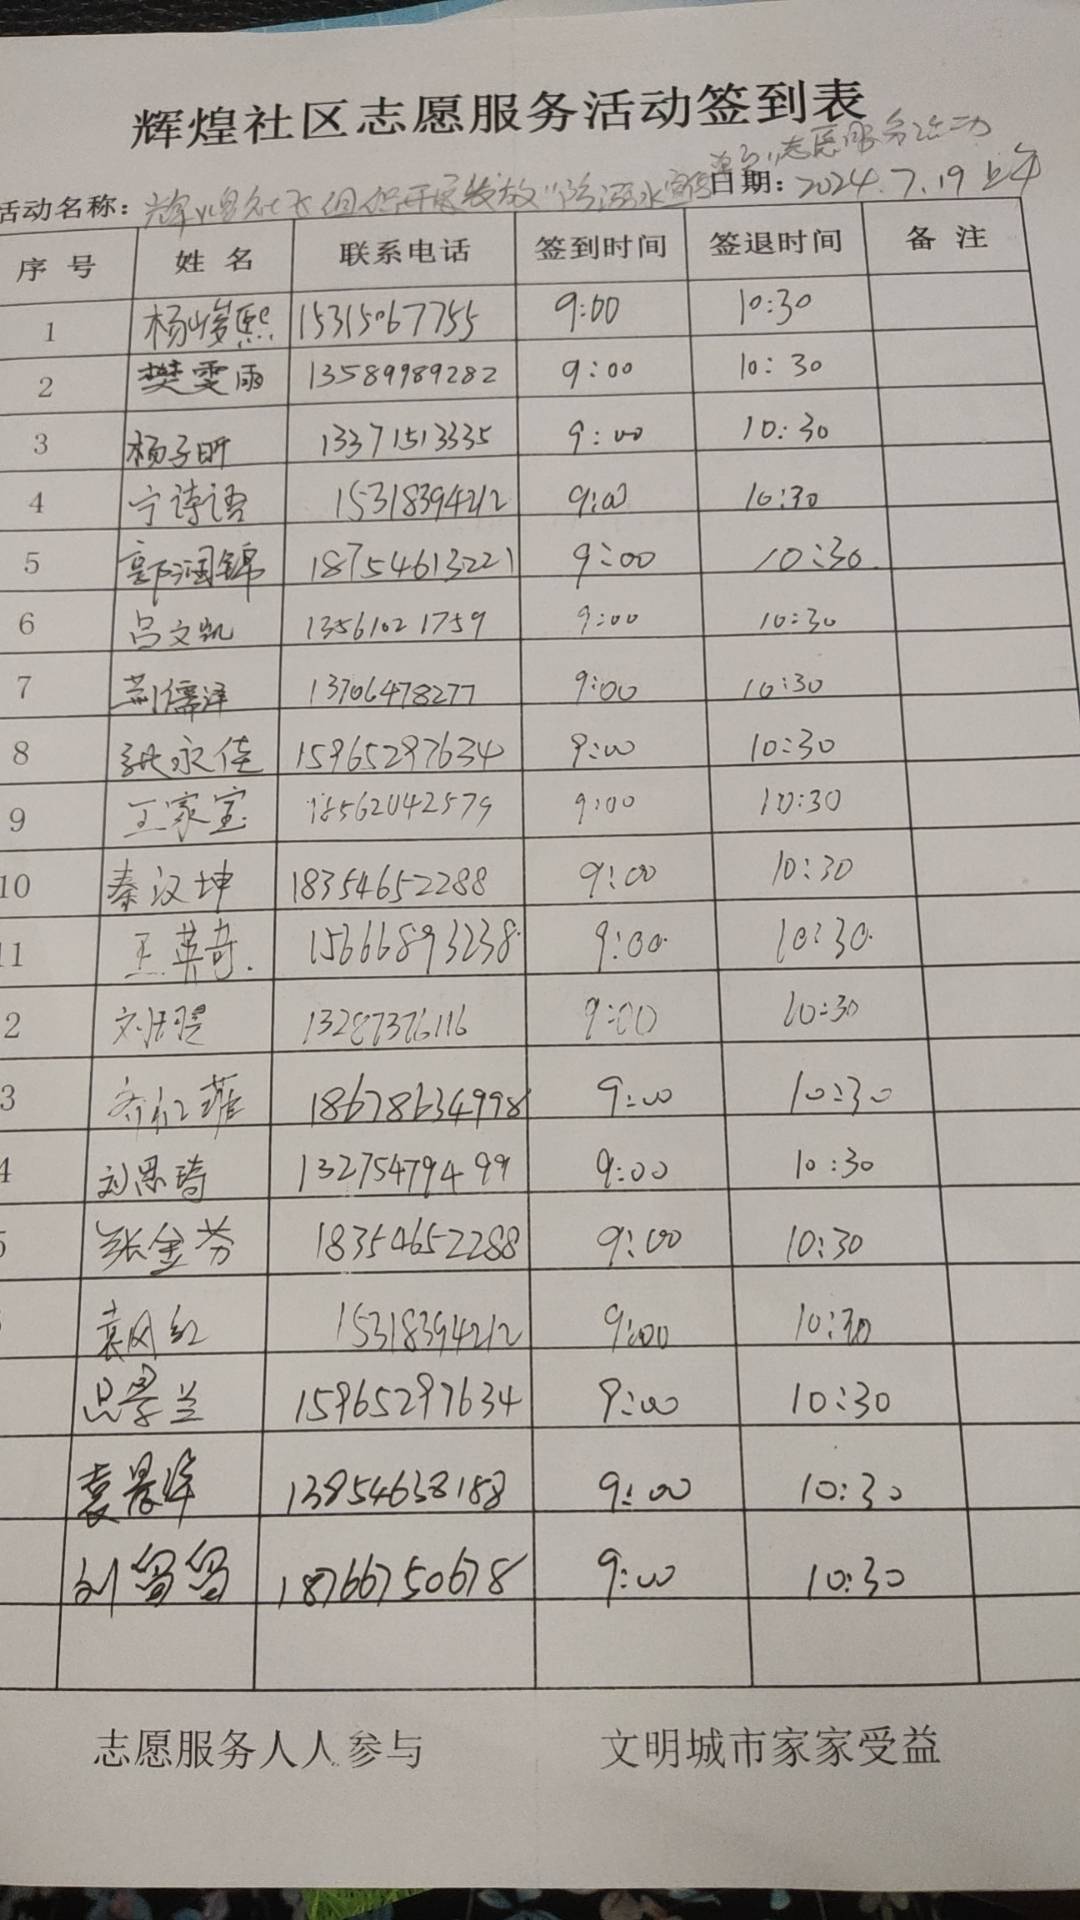 辉煌社区志愿服务活动签到表
单页"志愿服务活动
活动名称：辉煌社区组织开展发放"防溺水宣传 日期：2024.7.19上午
序号 姓名 联系电话 签到时间 签退时间 备注
1 杨峻熙 15315067755 9:00 10:30
2 樊雯雨 13589989282 9:00 10:30
3 杨子昕 13371513335 9:00 10:30
4 宁诗语 15318394212 9:00 10:30
5 郭润锦 18754613221 9:00 10:30
6 吕文凯 13561021759 9:00 10:30
7 荆儒泽 13706478277 9:00 10:30
8 张永佳 15965297634 9:00 10:30
9 王家宝 18562042579 9:00 10:30
10 秦汉坤 18354652288 9:00 10:30
11 王英奇. 15666893238 9:00 10:30
2 13287376116 9:00 10:30
3 18678634998 9:00 10:30
4 刘思琦 13275479499 9:00 10:30
5 张金芬 18354652288 9:00 10:30
袁风红 15318394212 9:00 10:30
吕景兰 15965297634 9:00 10:30
袁晨华 13854638188 9:00 10:30
刘留留 18766750678 9:00 10:30
志愿服务人人参与 文明城市家家受益